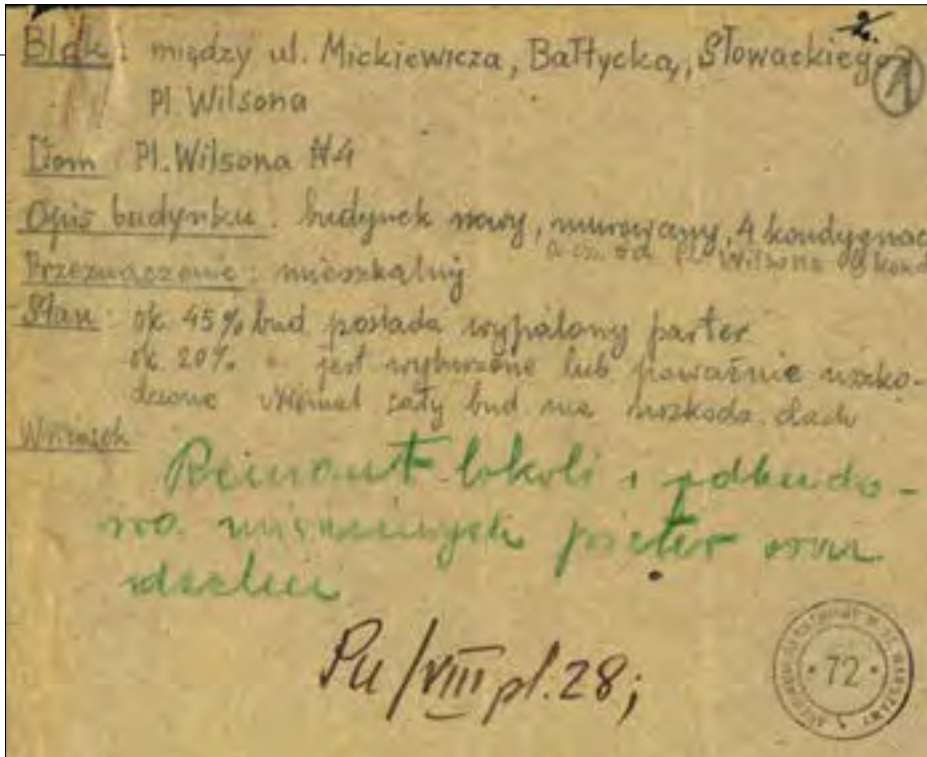 2.
Blok: między ul. Mickiewicza, Bałtycką, Słowackiego
1
Pl. Wilsona
Dom Pl. Wilsona #4
Opis budynku. budynek nowy, murowany, 4 kondygnac
a cz. od Pl. Wilsona 8 kond
Przeznaczenie: mieszkalny
Stan: ok. 45% bud posiada wypalony parter
ok. 20% " jest wyburzone lub poważnie uszko-
dzone Niemal cały bud ma uszkodz. dach
Wniosek
Remont lokali i odbudo-
wa zniszczonych pięter oraz
dachu
Pu/VIII pl. 28;
72